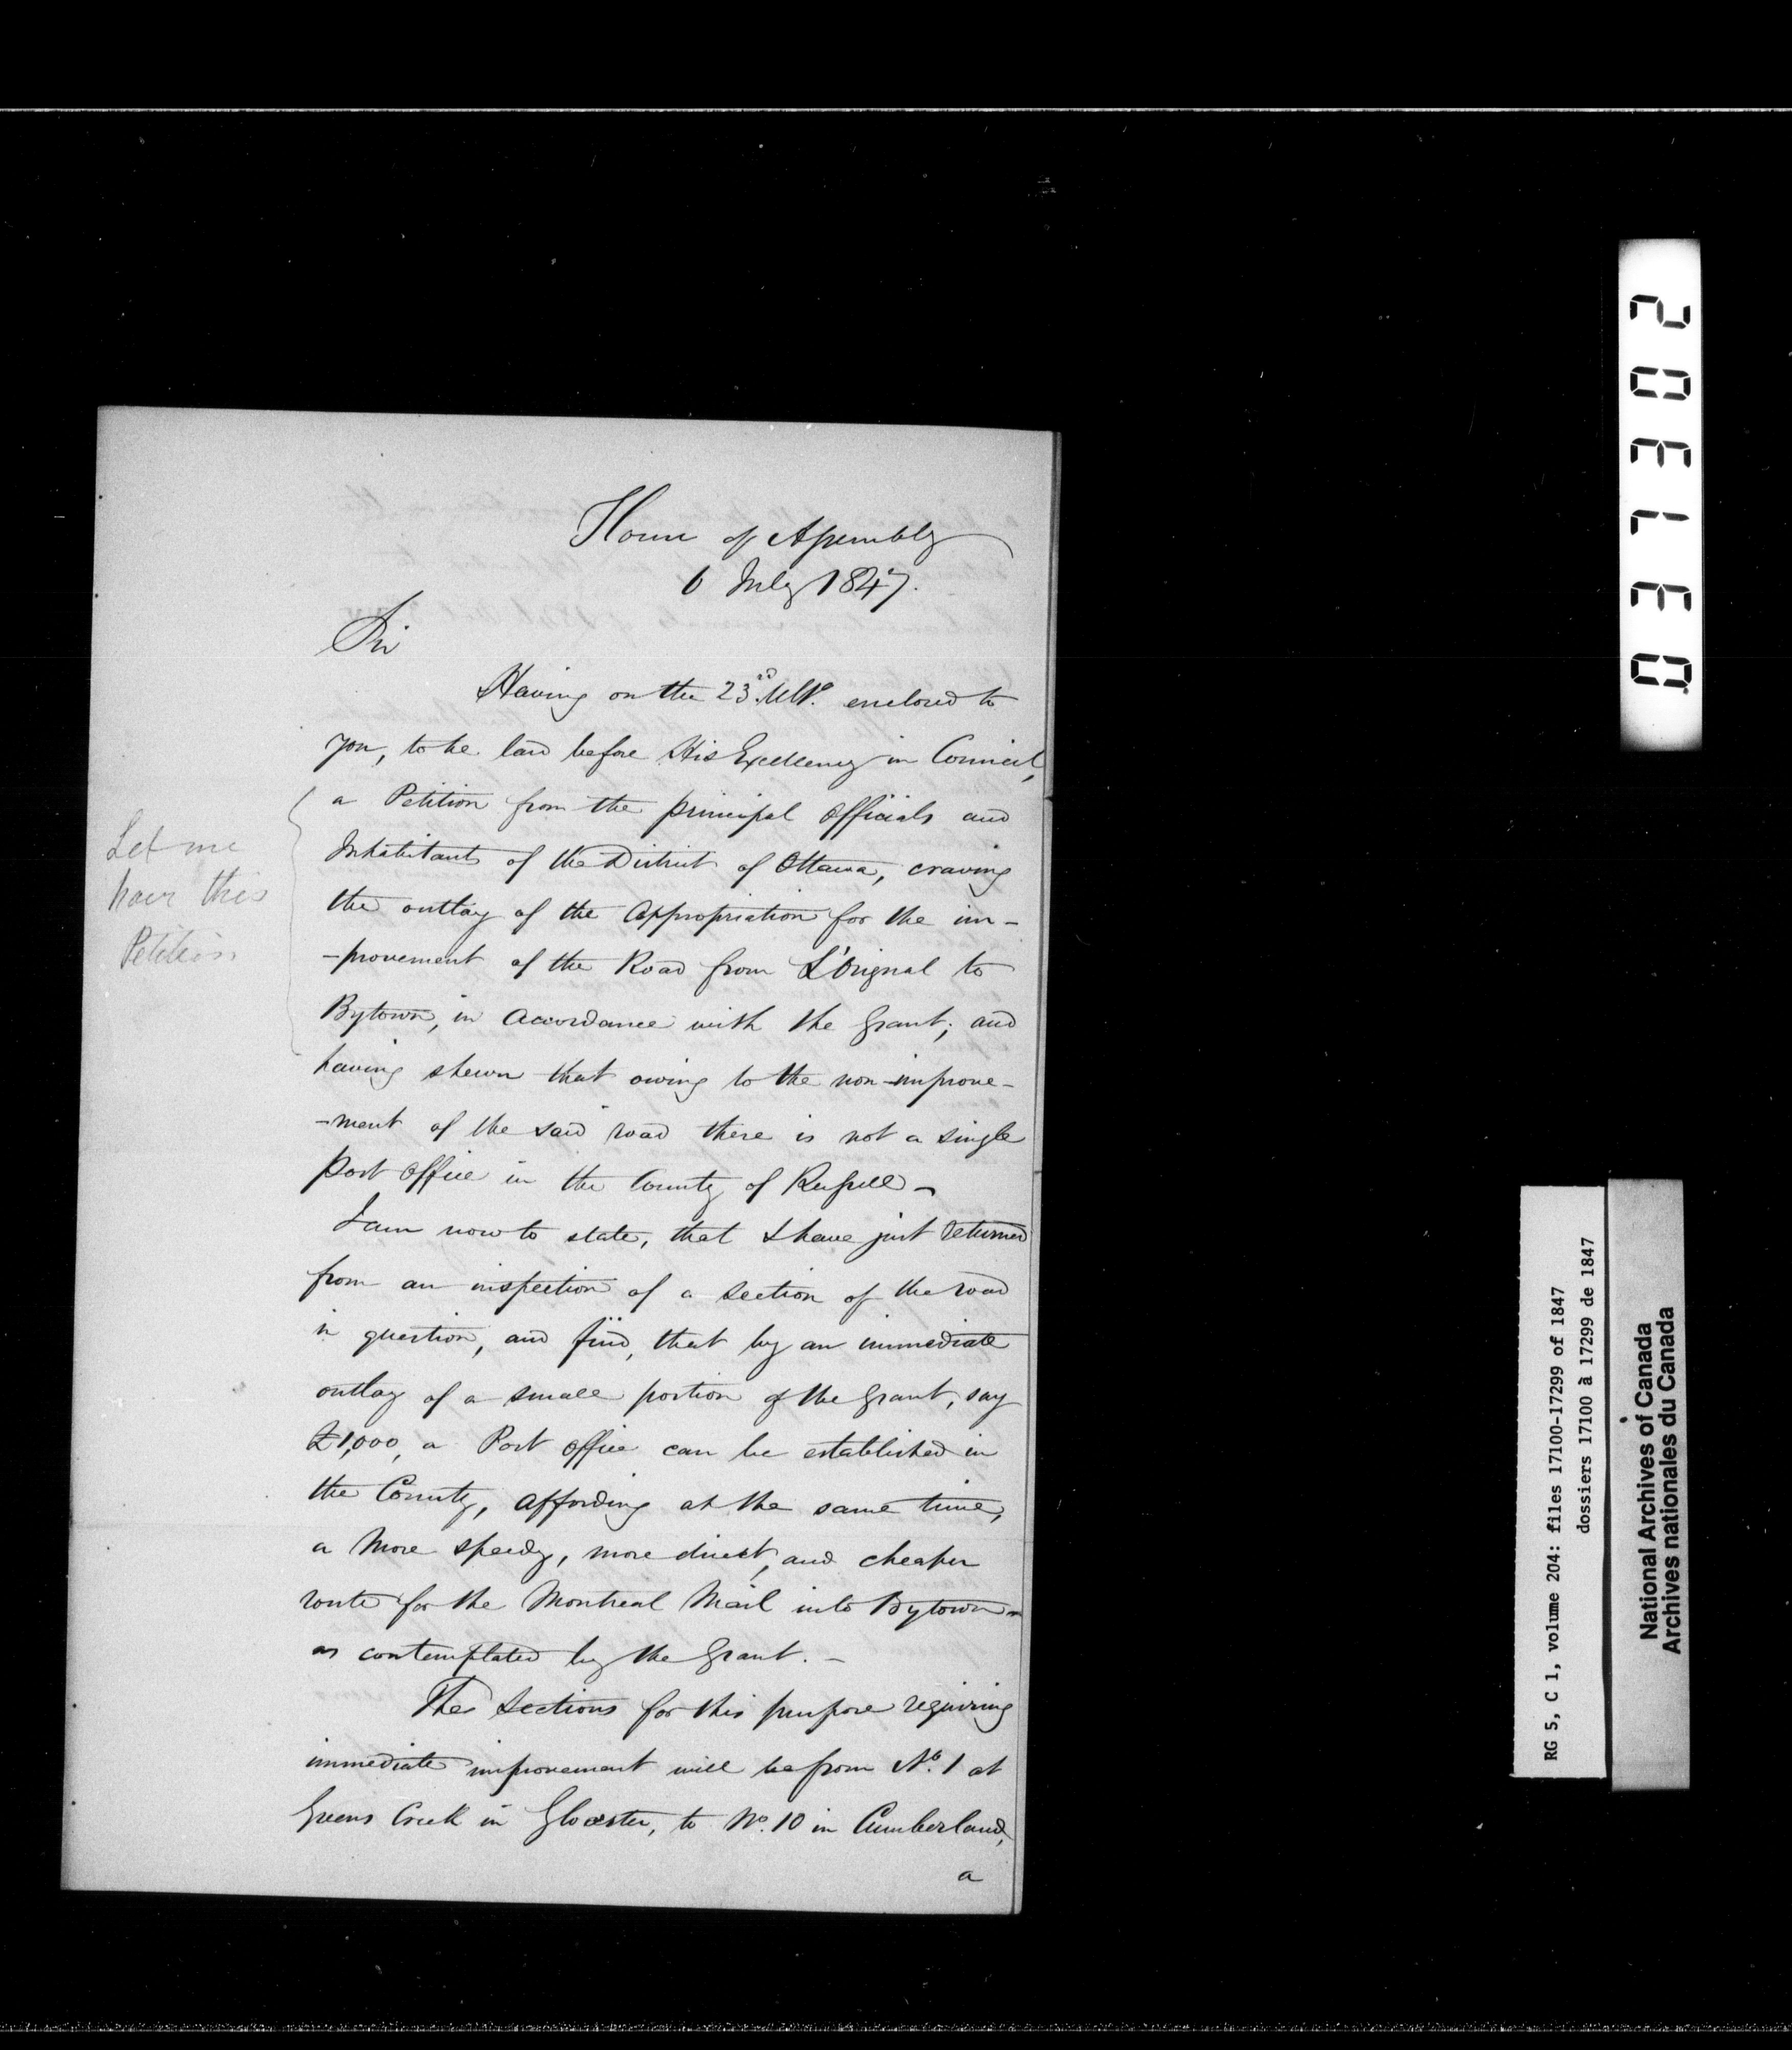 House of Assembly
6 July 1847.
Sir
Having on the 23rd. Ulto. enclosed to
you, to be laid before His Excellency in Council,
a Petition from the principal Officials and
Inhabitants of the District of Ottawa, craving
the outlay of the Appropriation for the im-
-provement of the Road from L'Orignal to
Bytown, in accordance with the Grant; and
having shewn that owing to the non-improve-
-ment of the said road there is not a single
Post Office in the County of Russell -
I am now to state, that I have just returned
from an inspection of a section of the road
in question, and find, that by an immediate
outlay of a small portion of the Grant, say
£1,000, a Post Office can be established in
the County, affording at the same time,
a more speedy, more direct, and cheaper
route for the Montreal Mail into Bytown -
as contemplated by the Grant. -
The Sections for this purpose requiring
immediate improvement will be from No. 1 at
Greens Creek in Glocester, to No. 10 in Cumberland,
a
Let me
have this
Petition
037302
RG 5, C 1, volume 204: files 17100-17299 of 1847
dossiers 17100 à 17299 de 1847
National Archives of Canada
Archives nationales du Canada